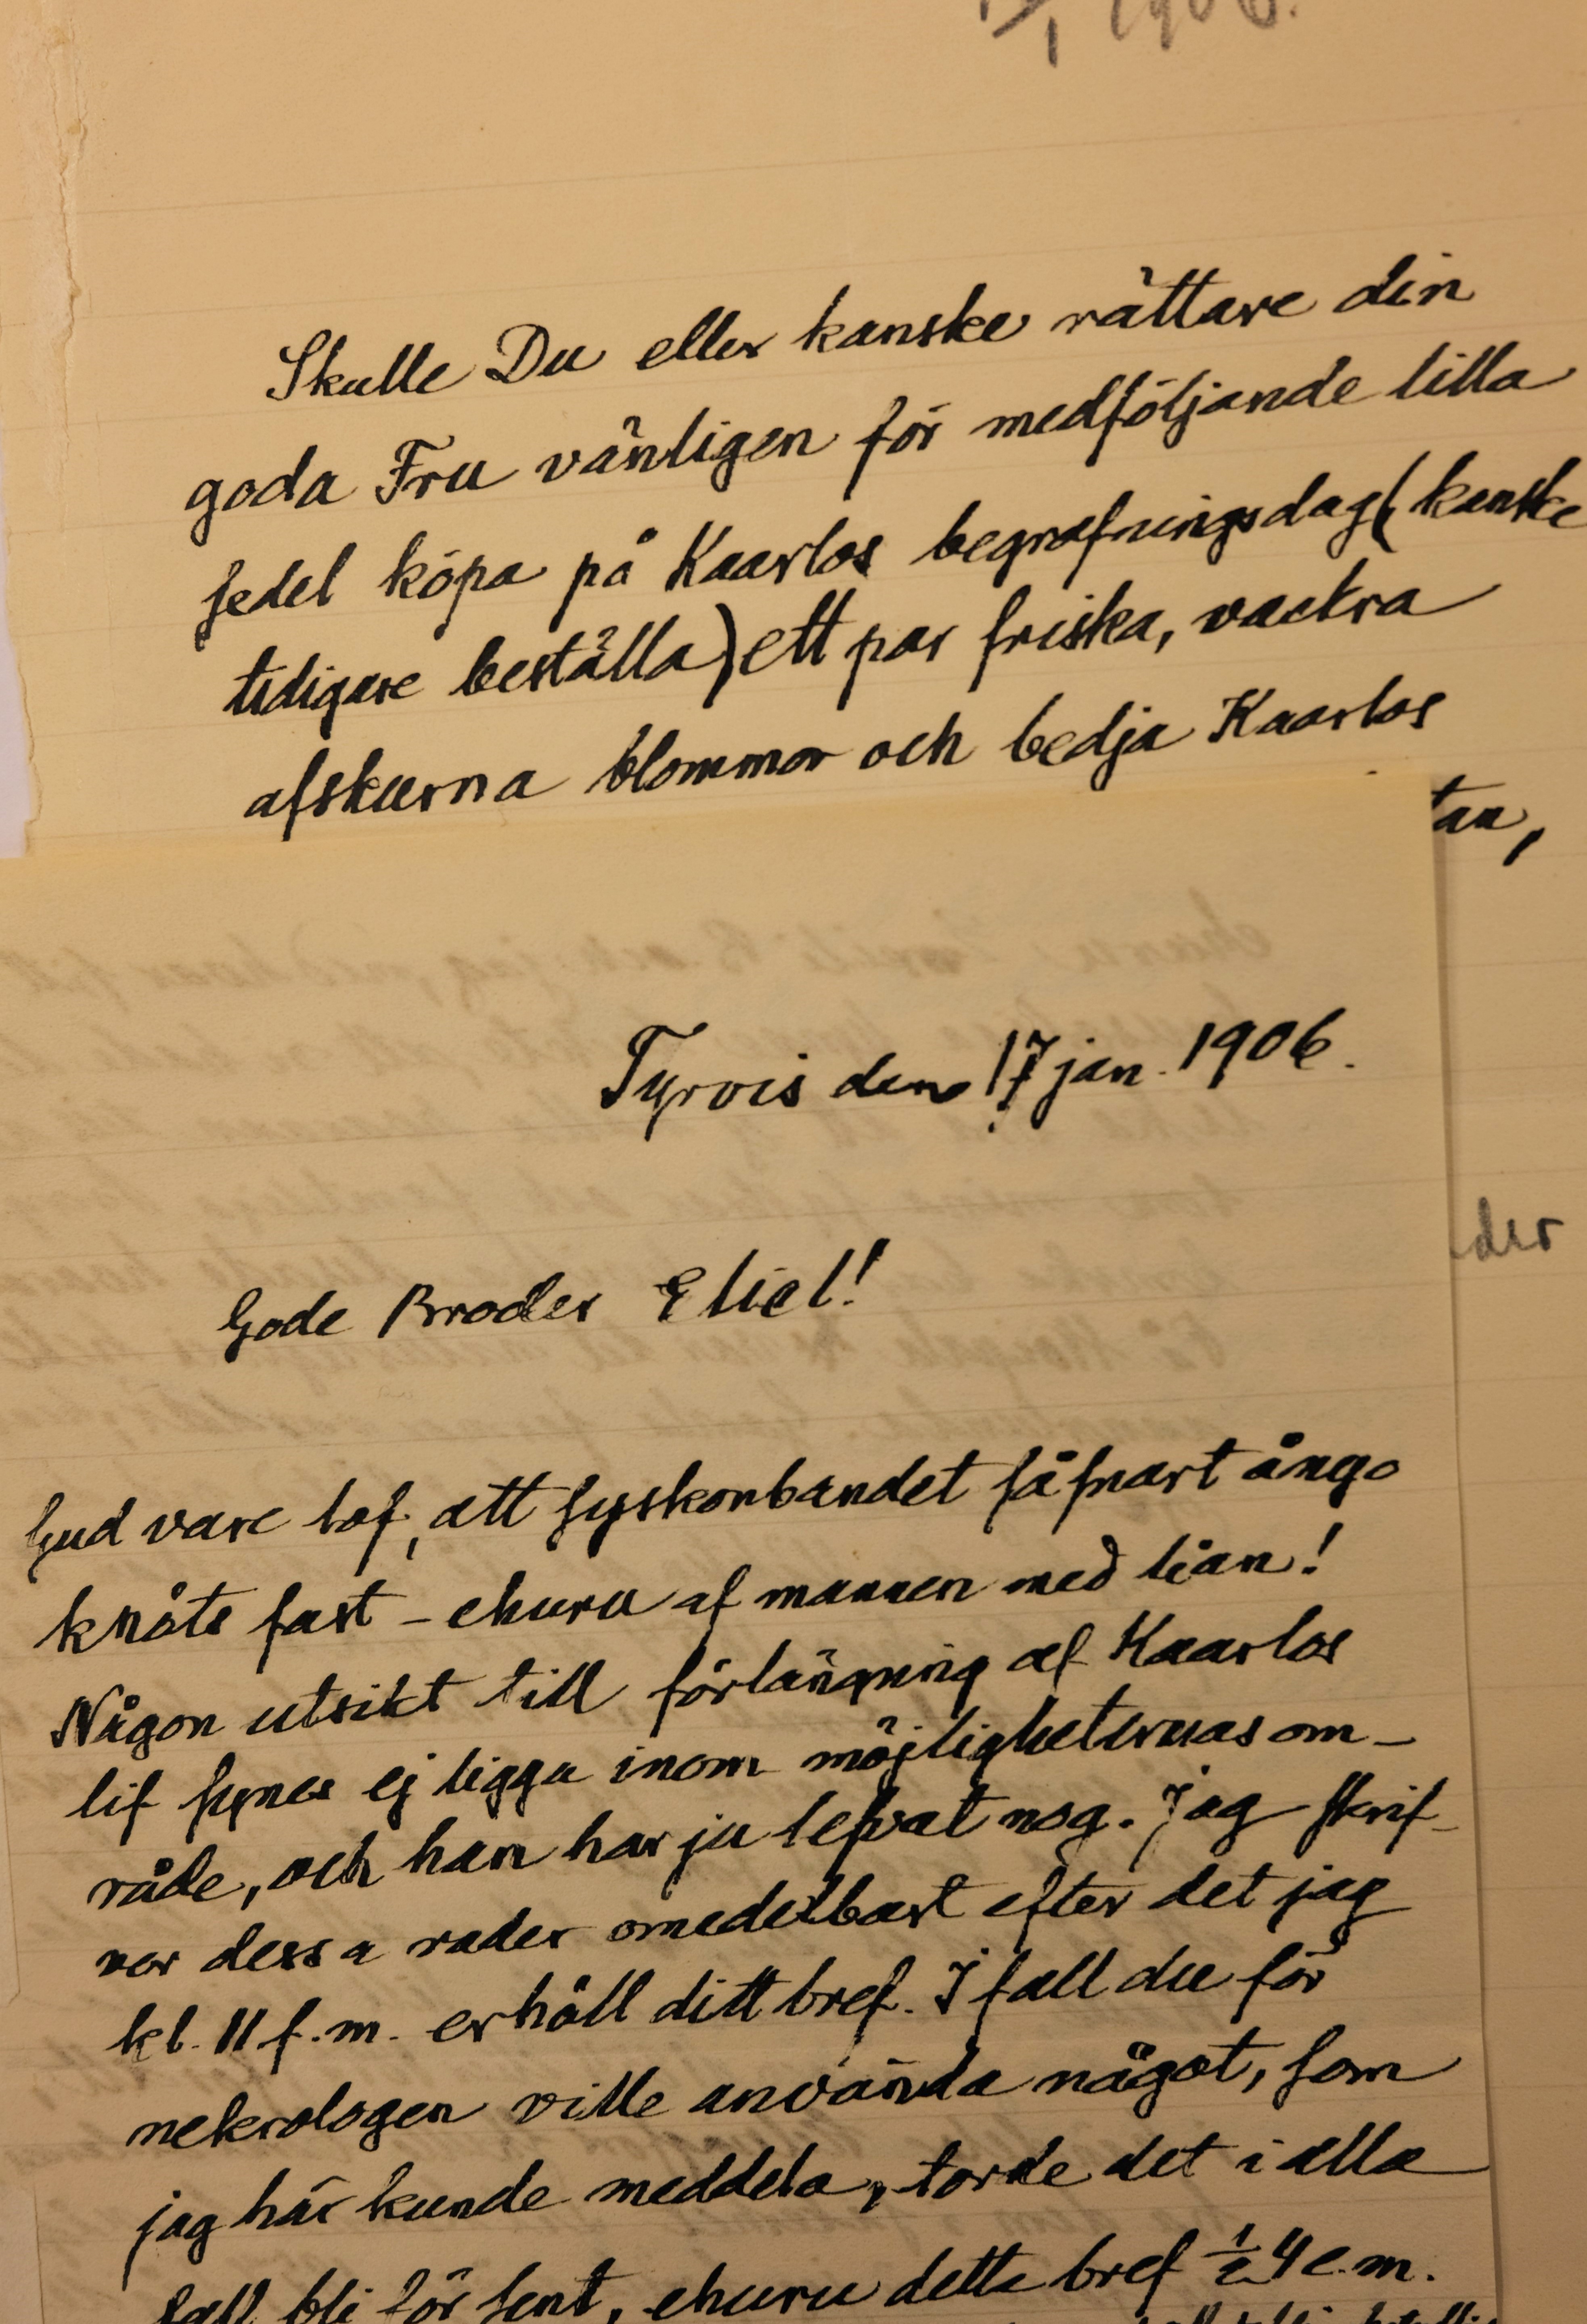 1906.
Skulle Du eller kanske rättare din
goda Fru vänligen för medföljande lilla
sedel köpa på Kaarlos begrafningsdag (kanske
tidigare beställa) ett par friska, vackra
afskurna blommor och bedja Kaarlos
tan,
Tyrvis den 17 jan. 1906.
der
Gode Broder Eliel!
Gud vare lof, att syskonbandet såsnart ånyo
knöts fast – ehuru af mannen med lian!
Någon utsikt till förlängning af Kaarlos
lif synes ej ligga inom möjligheternas om-
råde, och han har ju lefvat nog. Jag skrif-
ver dessa rader omedelbart efter det jag
kl. 11 f.m. erhöll ditt bref. I fall du för
nekrologen ville använda något, som
jag här kunde meddela, torde det i alla
fall bli för sent, ehuru detta bref ½4 e.m.